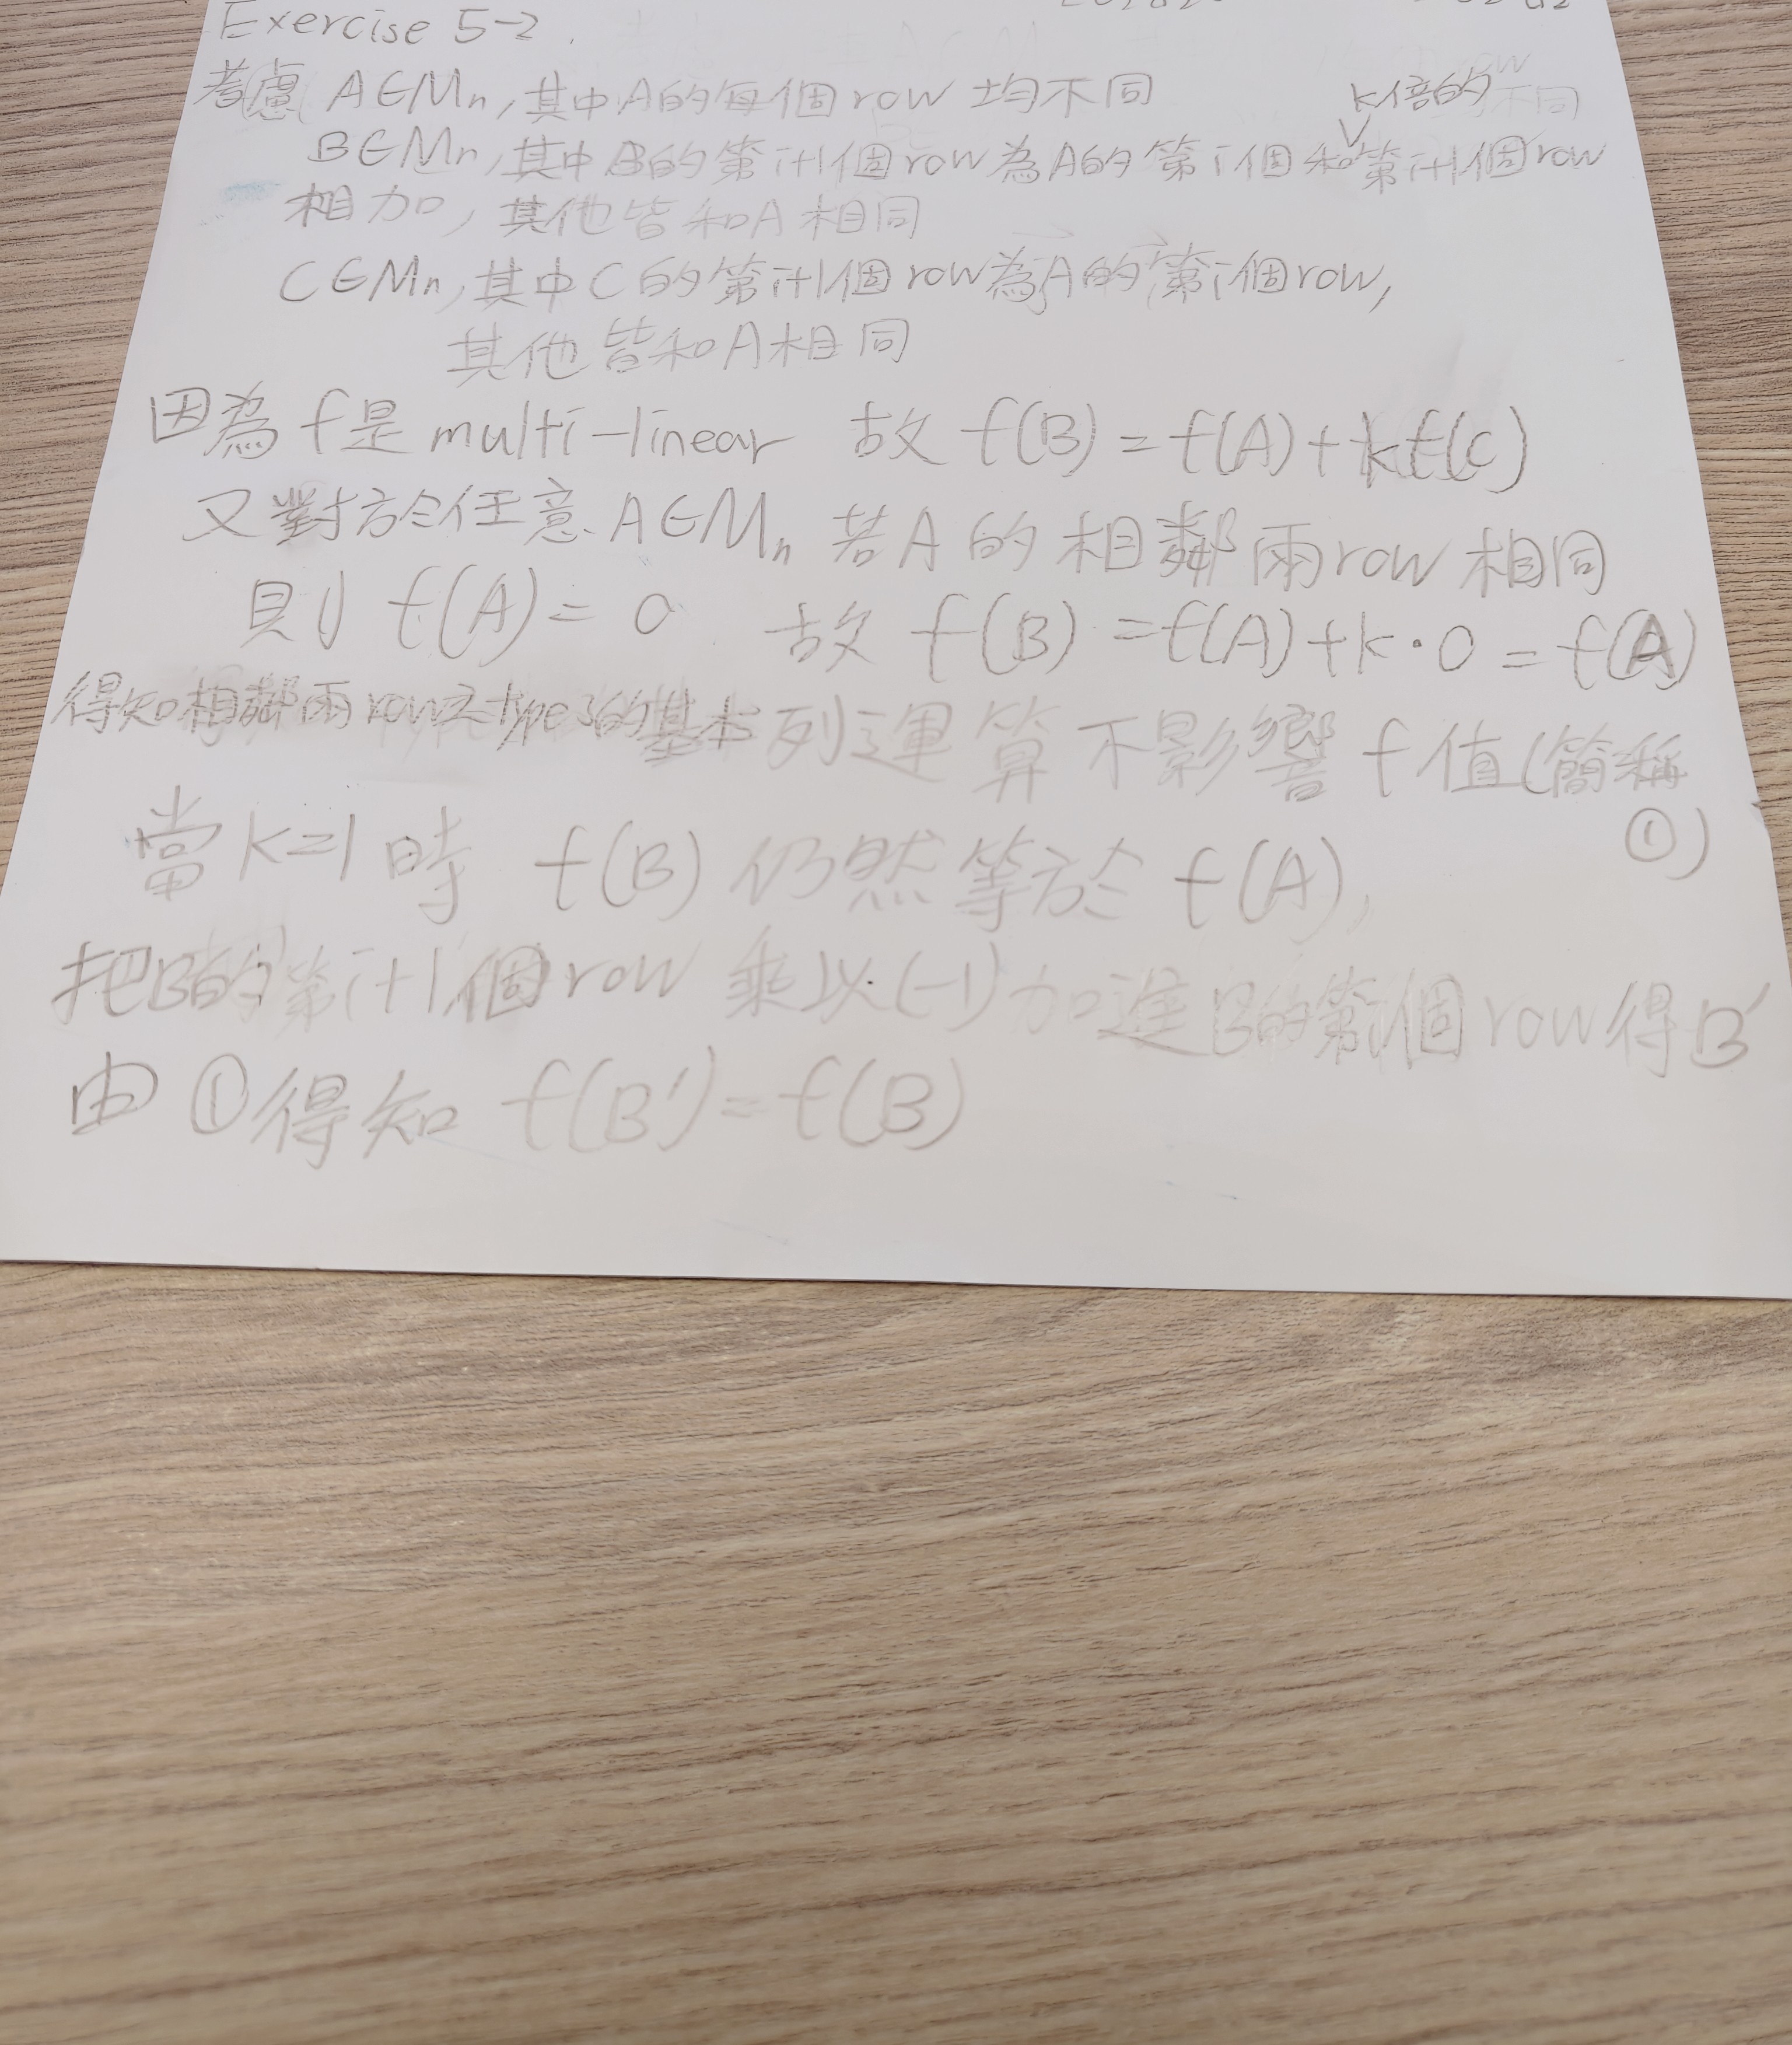 Exercise 5-2.
考慮 A∈Mn,其中A的每個row 均不同
k倍的
B∈Mn,其中B的第i+1個row為A的第i個和第i+1個row
相加,其他皆和A相同
C∈Mn,其中C的第i+1個row為A的第i個row,
其他皆和A相同
因為f是multi-linear 故 f(B)=f(A)+kf(C)
又對於任意A∈Mn 若A的相鄰兩row相同
則 f(A)=0 故 f(B)=f(A)+k·0=f(A)
得知相鄰兩row之type3的基本列運算不影響f值(簡稱
①)
當k=1時 f(B)仍然等於f(A),
把B的第i+1個row 乘以(-1)加進B的第i個row得B'
由①得知 f(B')=f(B)